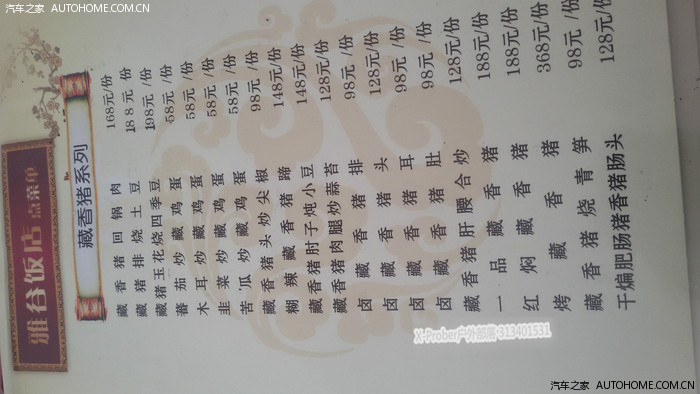 汽车之家 AUTOHOME.COM.CN
雅谷饭店 点菜单
藏香猪系列
藏香猪回锅肉 168元/份
藏猪排烧土豆 188元 /份
藏猪玉花烧四季豆 198元 /份
蕃茄炒藏鸡蛋 58元 /份
木耳炒藏鸡蛋 58元 /份
韭菜炒藏鸡蛋 58元 /份
苦瓜炒藏鸡蛋 58元 /份
藏香猪头炒尖椒 98元 /份
糊辣藏香猪蹄 148元/份
藏香猪肘子炖小豆 148元/份
藏香猪肉腿炒蒜苔 128元/份
卤藏香猪排 98元 /份
卤藏香猪头 128元/份
卤藏香猪耳 98元 /份
卤藏香猪肚 98元 /份
藏香猪肝腰合炒 128元/份
一品藏香猪 188元/份
红焖藏香猪 188元/份
烤藏香猪 368元/份
藏香猪烧青笋 98元 /份
干煸肥肠猪香猪肠头 128元/份
X-Prober户外部落:313401531
汽车之家 AUTOHOME.COM.CN